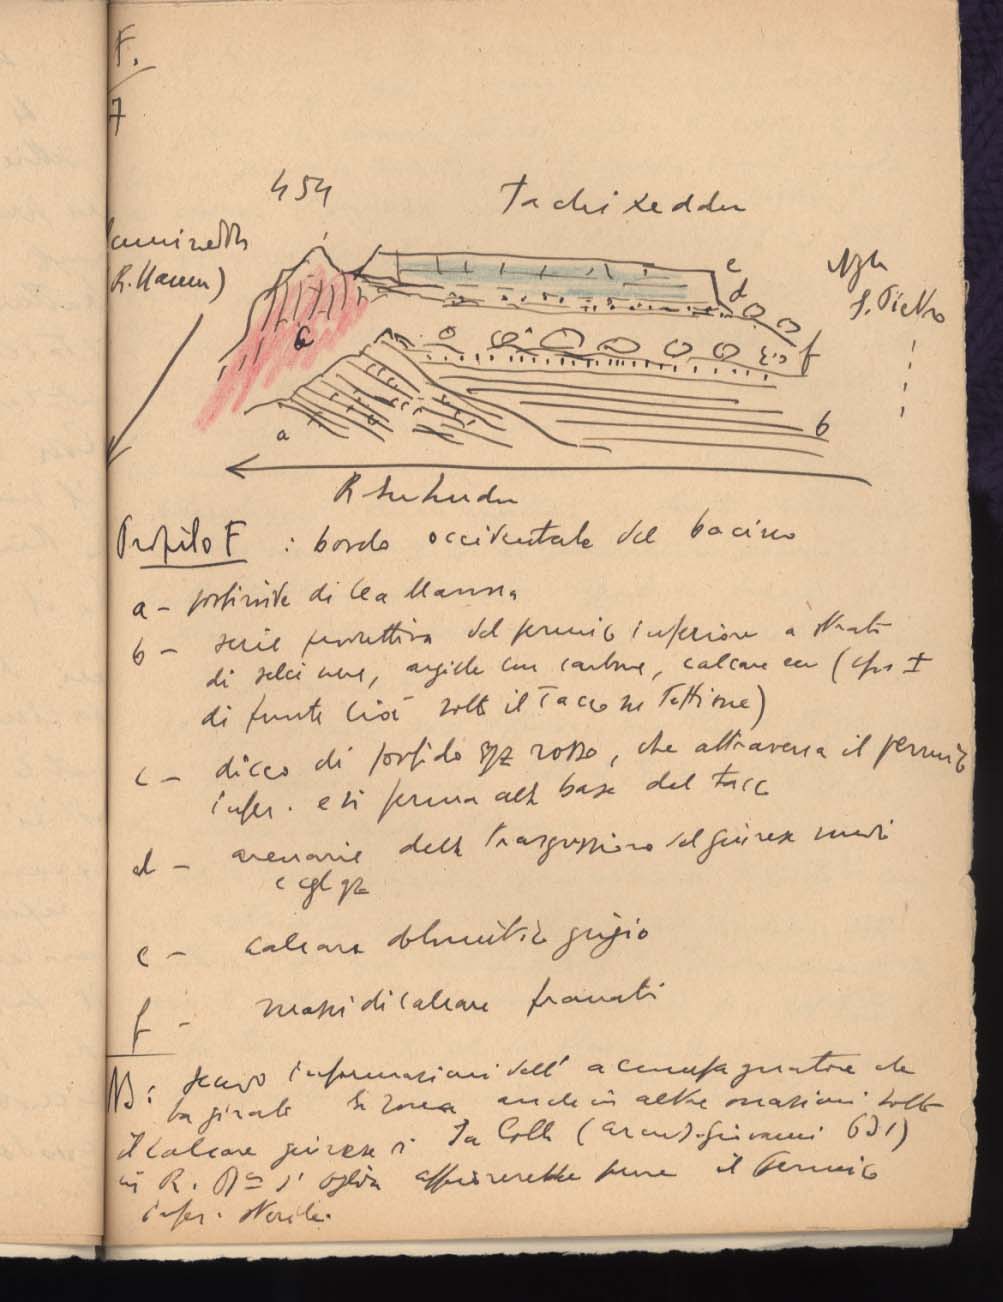 F.
7
454
Tachixeddu
(R. Mannu)
S. Pietro
e
d
f
c
a
b
Profilo F : bordo occidentale del bacino
a - porfirite di Sea Manna
b - serie produttiva del permico inferiore a strati
di selci nere, argille con carbone, calcare ecc (cfr I
di funta sotto il Tacco
c - dicco di porfido qz rosso, che attraversa il permico
infer. e si ferma alla base del tacco
d - arenarie della trasgressione del giurese medio
e cgl qz
e - calcare dolomitico grigio
f - massi di calcare franati
NB: secondo informazioni dell' accompagnatore che
ha girato la zona anche in altre occasioni sotto
il calcare giurese Sa Colla
in R. affiorerebbe pure il Permico
infer. sterile.